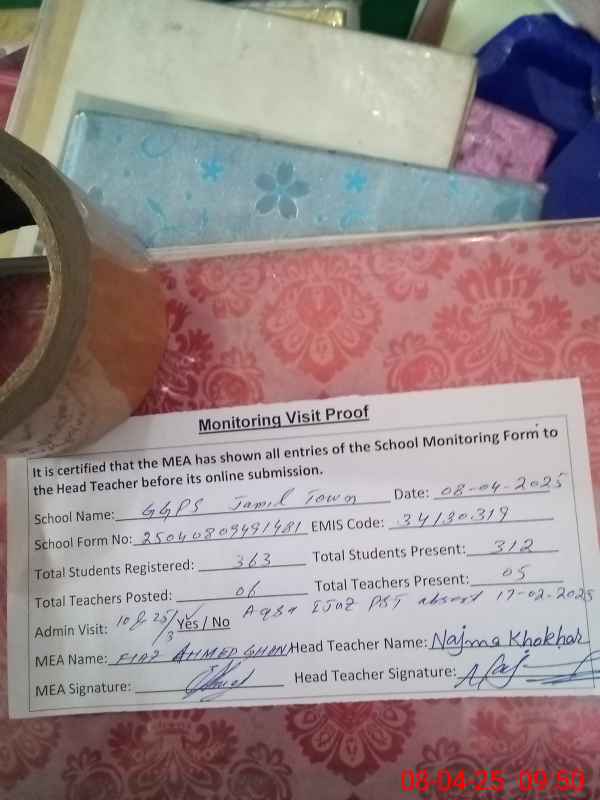 Monitoring Visit Proof
It is certified that the MEA has shown all entries of the School Monitoring Form to
the Head Teacher before its online submission.
School Name: GGPS Jamil Town Date: 08-04-2025
School Form No: 25040809491481 EMIS Code: 34130319
Total Students Registered: 363 Total Students Present: 312
Total Teachers Posted: 06 Total Teachers Present: 05
Admin Visit: 10 & 25/3 Yes / No Aqsa Ijaz PST absent 17-02-2025
MEA Name: AHMED Head Teacher Name: Najma Khokhar
MEA Signature: Head Teacher Signature:
08-04-25 09:50